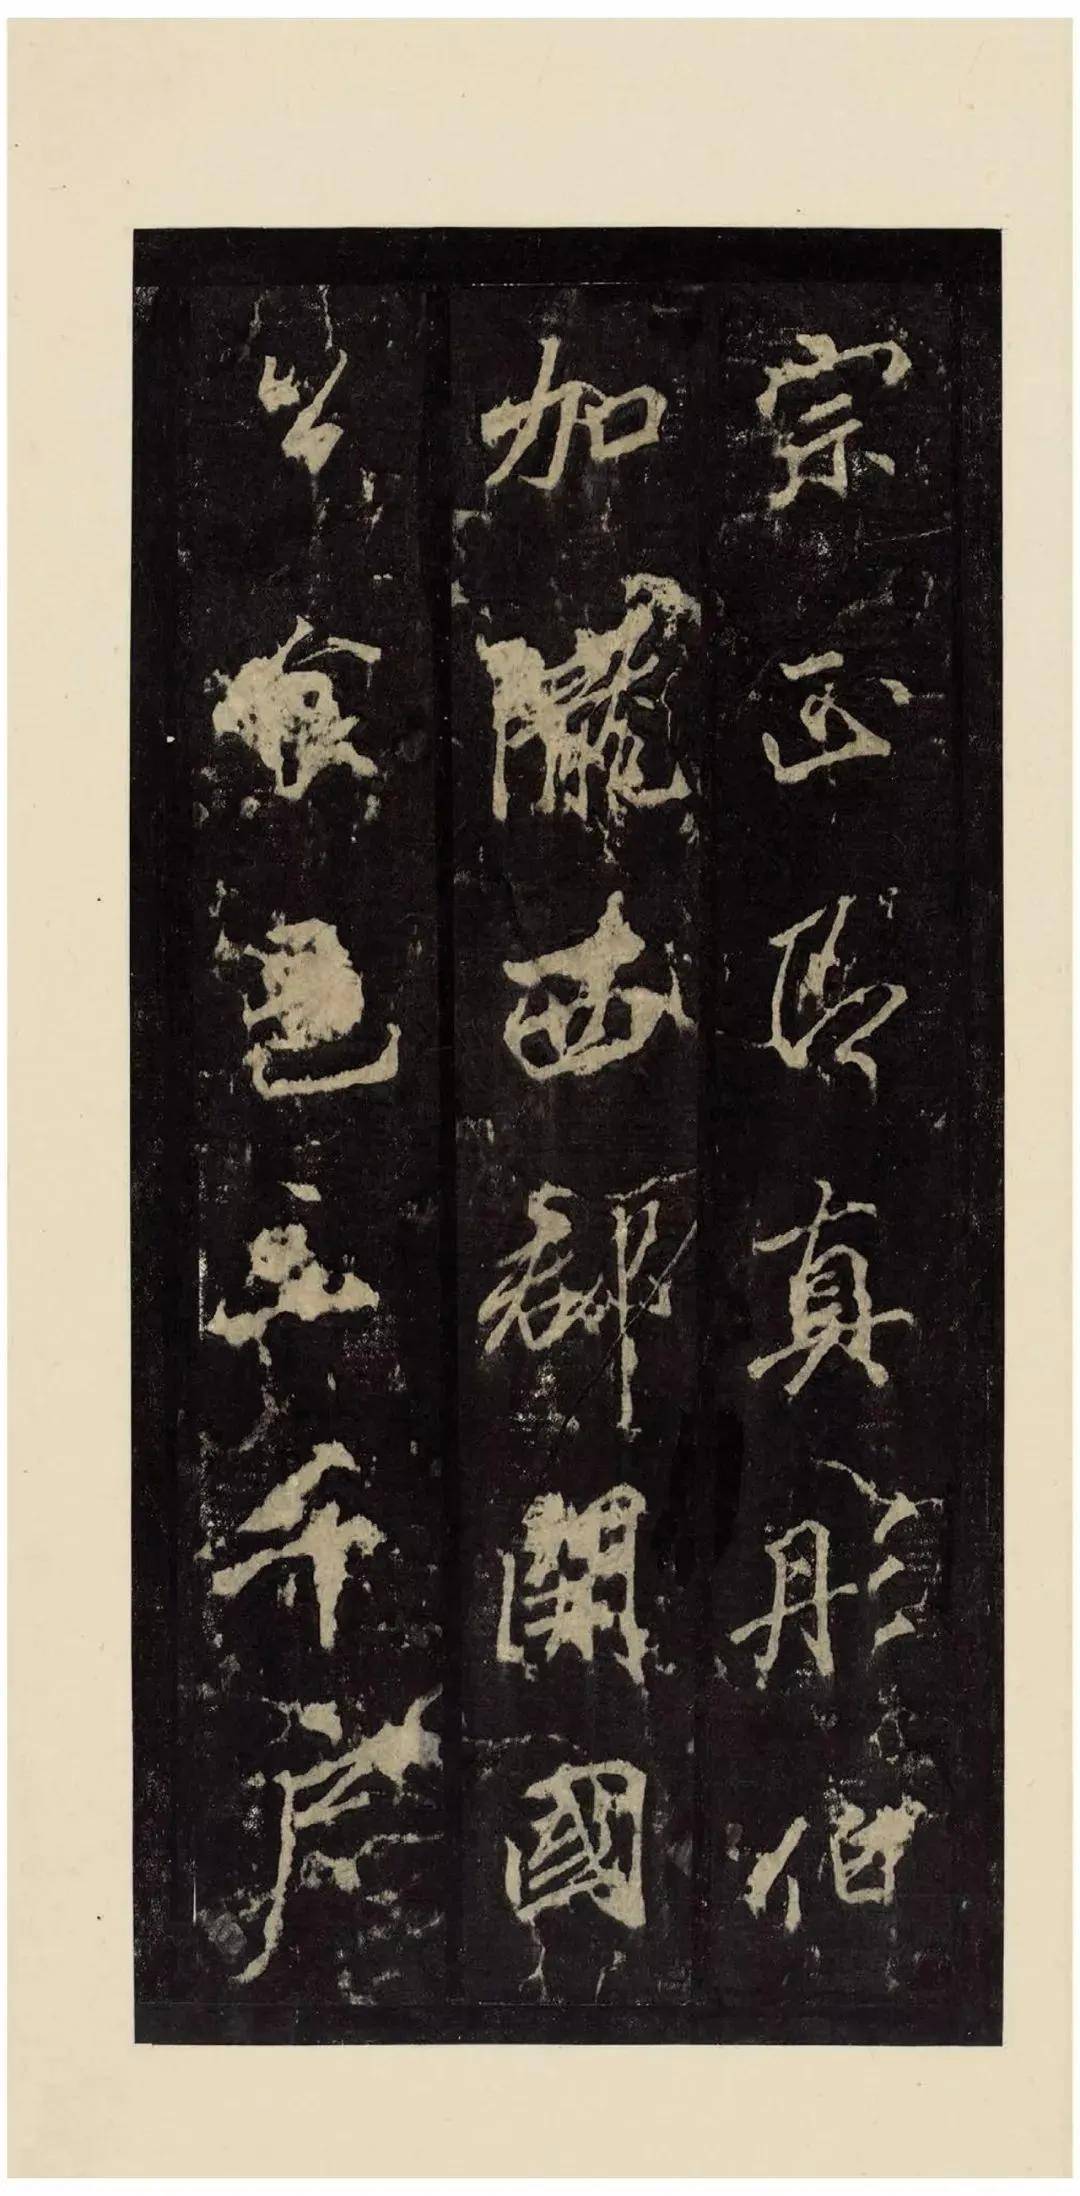 宗正即真彤伯
加隴西郡開國
公食邑二千户